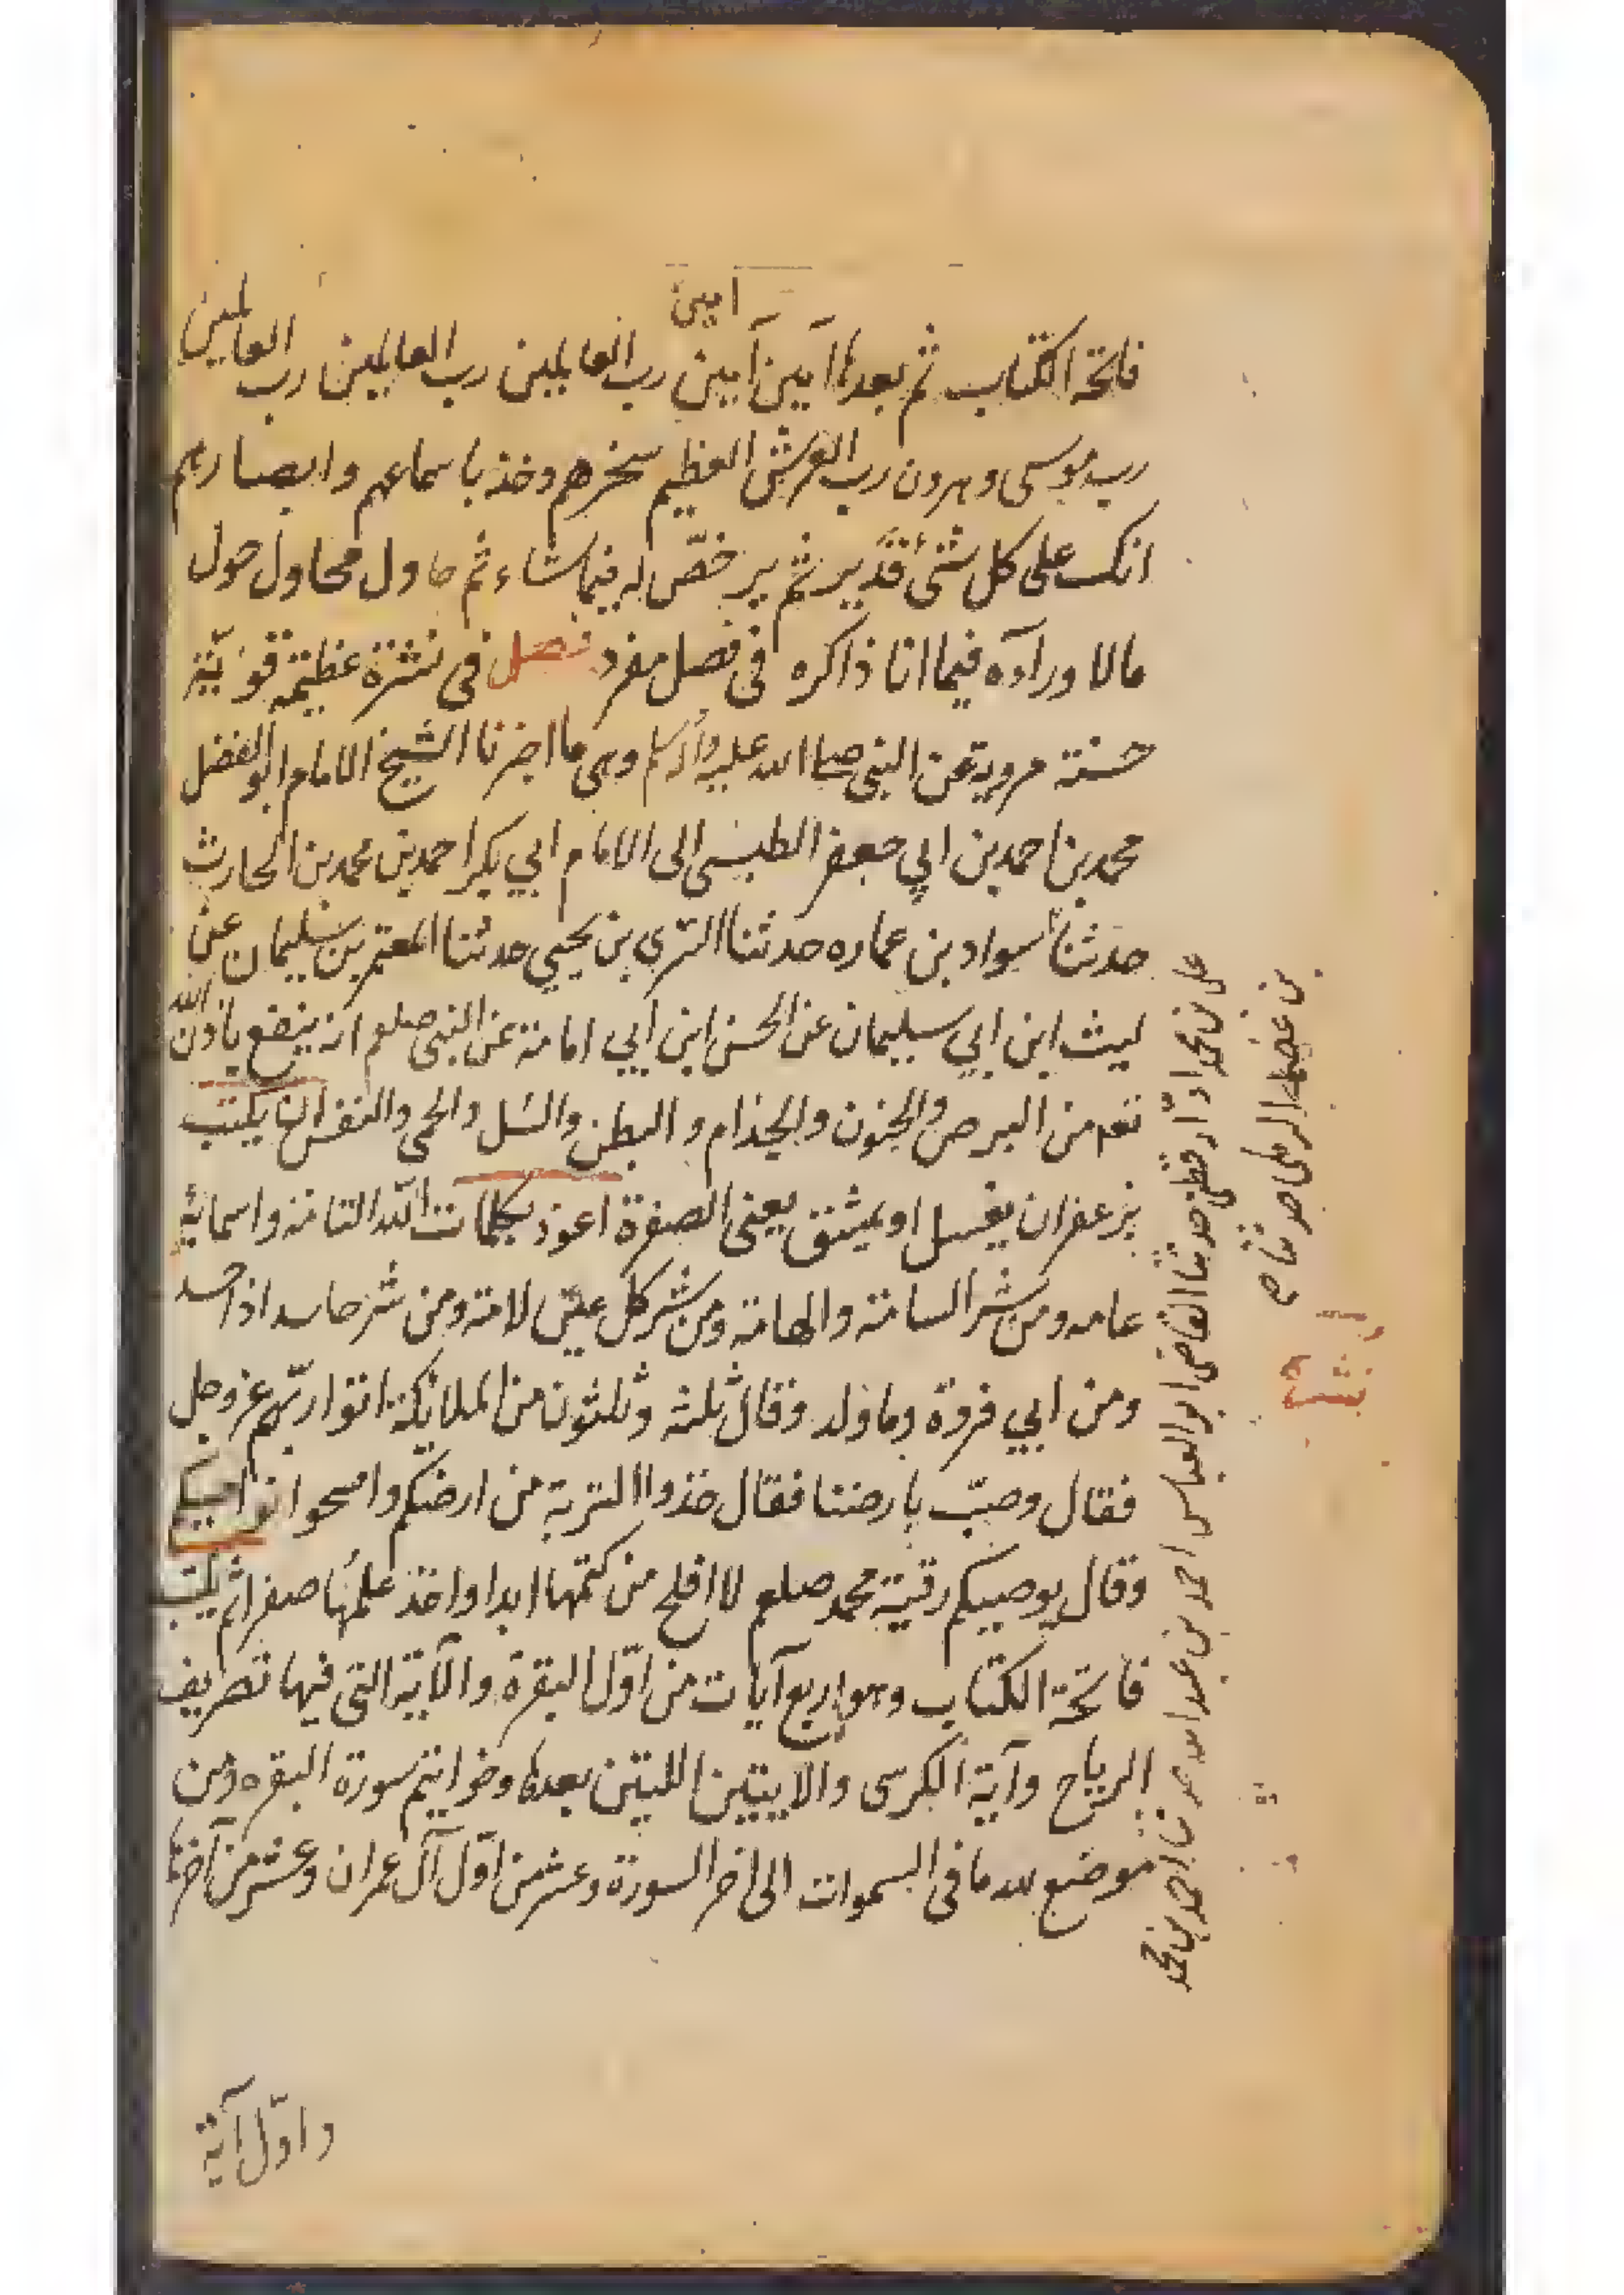 امين
فاتحة الكتاب ثم بعدها آمين آمين رب العالمين رب العالمين رب العالمين
رب موسى وهرون رب العرش العظيم سخرهم وخذ باسماعهم وابصارهم
انك على كل شئ قدير ثم يرخص له فيما شاء ثم حاول محاول حول
مالا ورآه فيما انا ذاكره في فصل مفرد فصل في نشرة عظيمة قوية
حسنة مروية عن النبي صلى الله عليه وآله وسلم وهي ما اخبرنا الشيخ الامام ابو الفضل
محمد بن احمد بن ابي جعفر الطبسي الى الامام ابي بكر احمد بن محمد بن الحارث
حدثنا سواد بن عماره حدثنا السري بن يحيى حدثنا المعتمر بن سليمان عن
ليث ابن ابي سليمان عن الحسن ابن ابي امامة عن النبي صلعم انه ينفع باذن الله
تعم من البرص والجنون والجذام والبطن والسل والحمى والنفس ان يكتب
بزعفران يغسل او بمشق يعني الصفرة اعوذ بكلمات الله التامة واسمائه
عامه ومن شر السامة والهامة ومن شر كل عين لامة ومن شر حاسد اذا حسد
ومن ابي فروة وما ولد وقال ثلثة وثلثون من الملائكة اتوا ربهم عز وجل
فقال وصب بارضنا فقال خذوا التربة من ارضكم وامسحوا نواصيكم
وقال بوصيكم رقية محمد صلعم لا افلح من كتمها ابدا واخذ عليها صفرا ثم يكتب
فاتحة الكتاب وهو اربع آيات من اول البقرة والآية التي فيها تصريف
الرياح وآية الكرسى والايتين اللتين بعدها وخواتيم سورة البقره ومن
موضع لله ما في السموات الى اخر السورة وعشر من اول آل عمران وعشر من آخرها
واول آية
على بن محمد حدثنا القاضي ابو العباس احمد بن عبد الله حدثنا احمد بن محمد
بن الرملي حدثنا صح
نشرة